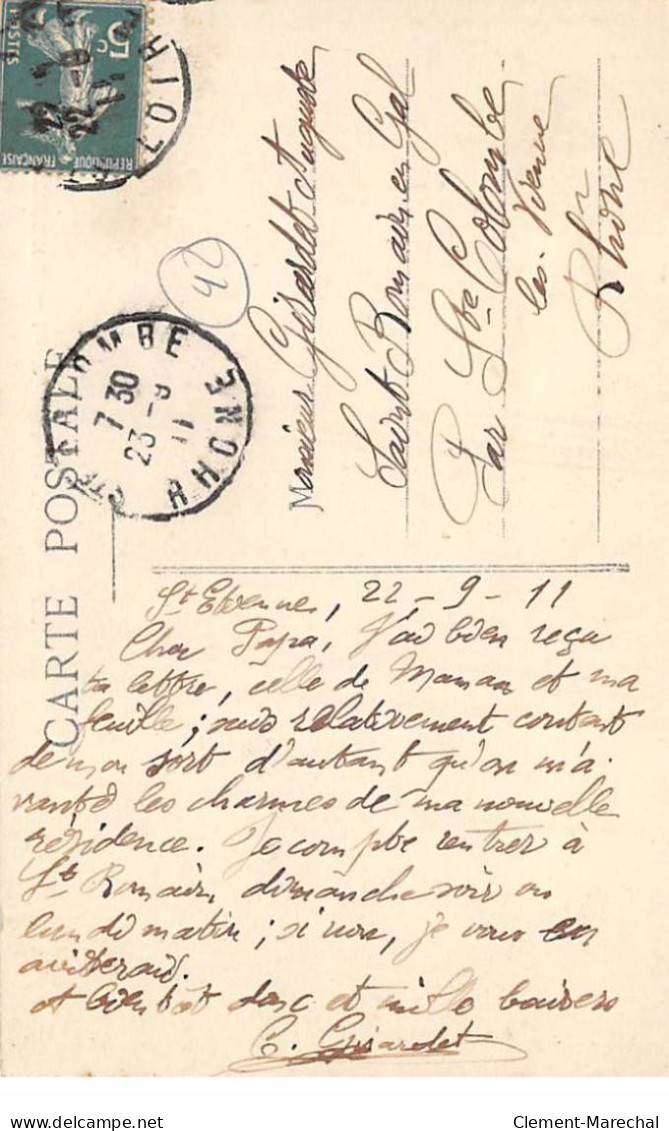 5c
POSTES
REPUBLIQUE FRANÇAISE
22-9
11
LOIRE
42
CARTE POSTALE
STE COLOMBE RHONE
7 30
23-9
11
Monsieur Girardet Auguste
Saint Romain en Gal
Par Ste Colombe
les-Vienne
Rhône
St Etienne, 22-9-11
Cher Papa, J'ai bien reçu
ta lettre, celle de Maman et ma
feuille; suis relativement content
de mon sort d'autant qu'on m'a
vanté les charmes de ma nouvelle
résidence. Je compte rentrer à
St Romain dimanche soir ou
lundi matin; si non, je vous en
aviserais.
A bientôt donc et mille baisers
C. Girardet
Clement-Marechal